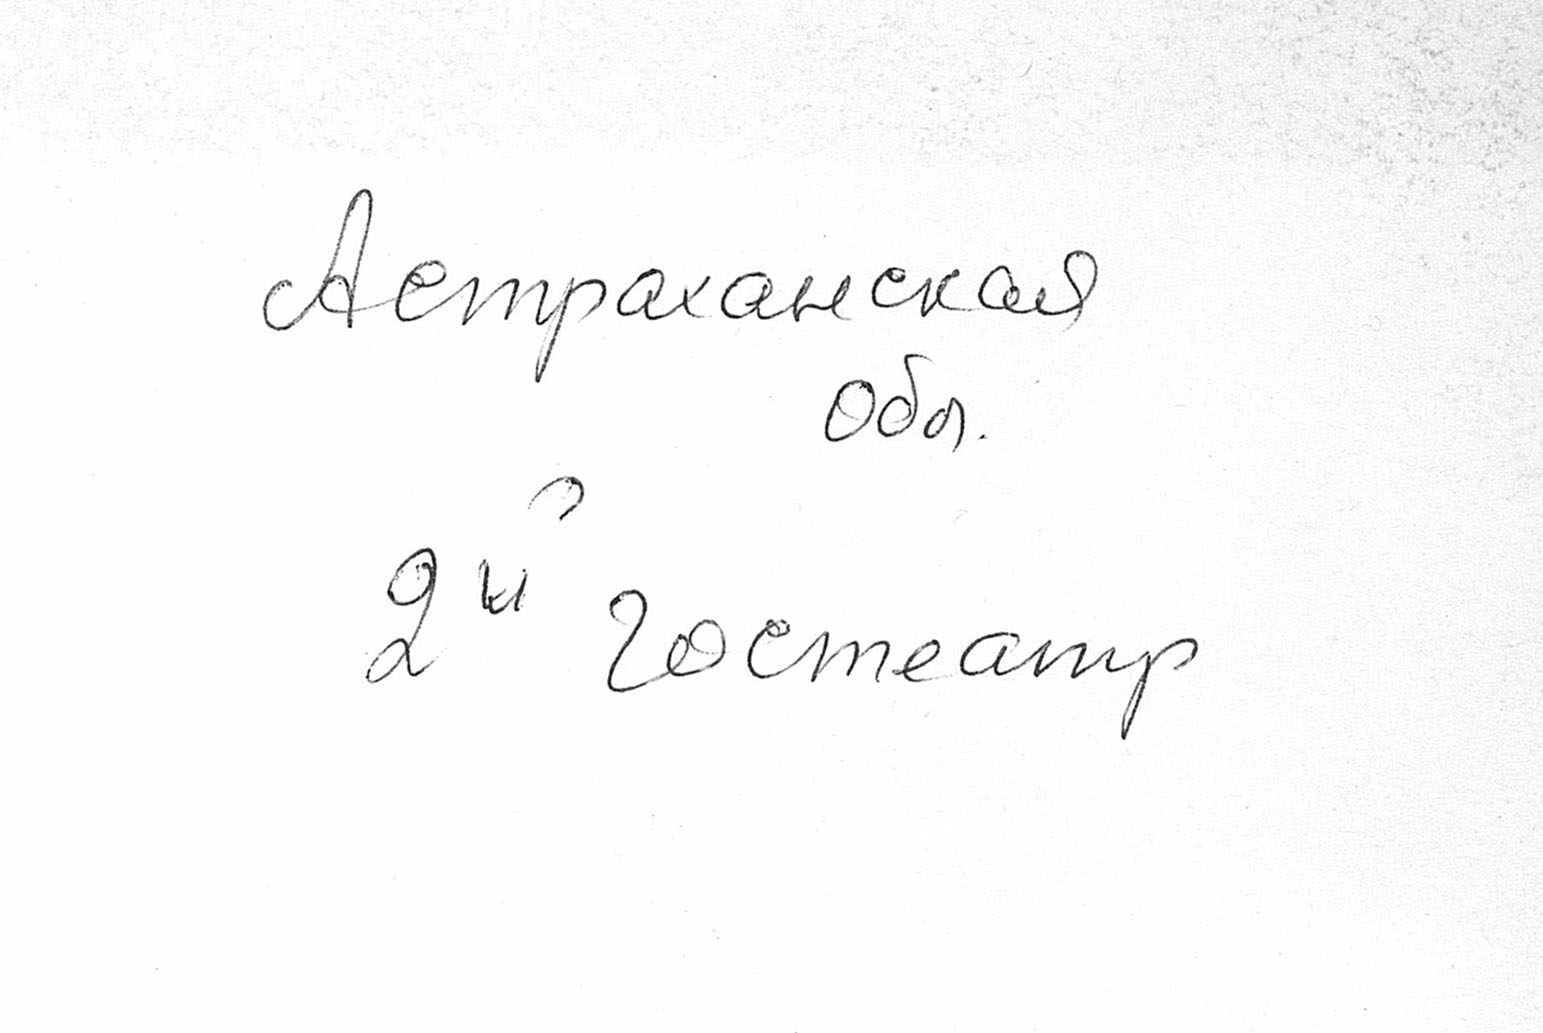 Астраханская
обл.
2й Гостеатр